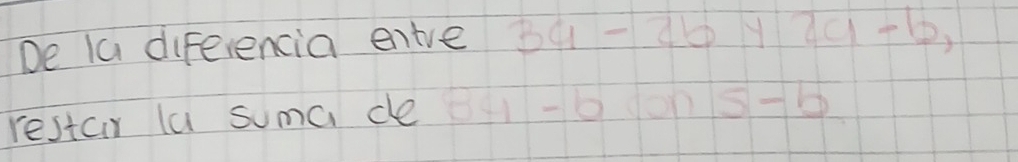 De la diferencia entre 3a - 2b y 2a - b,
restar la suma de 8a - b con 5 - b